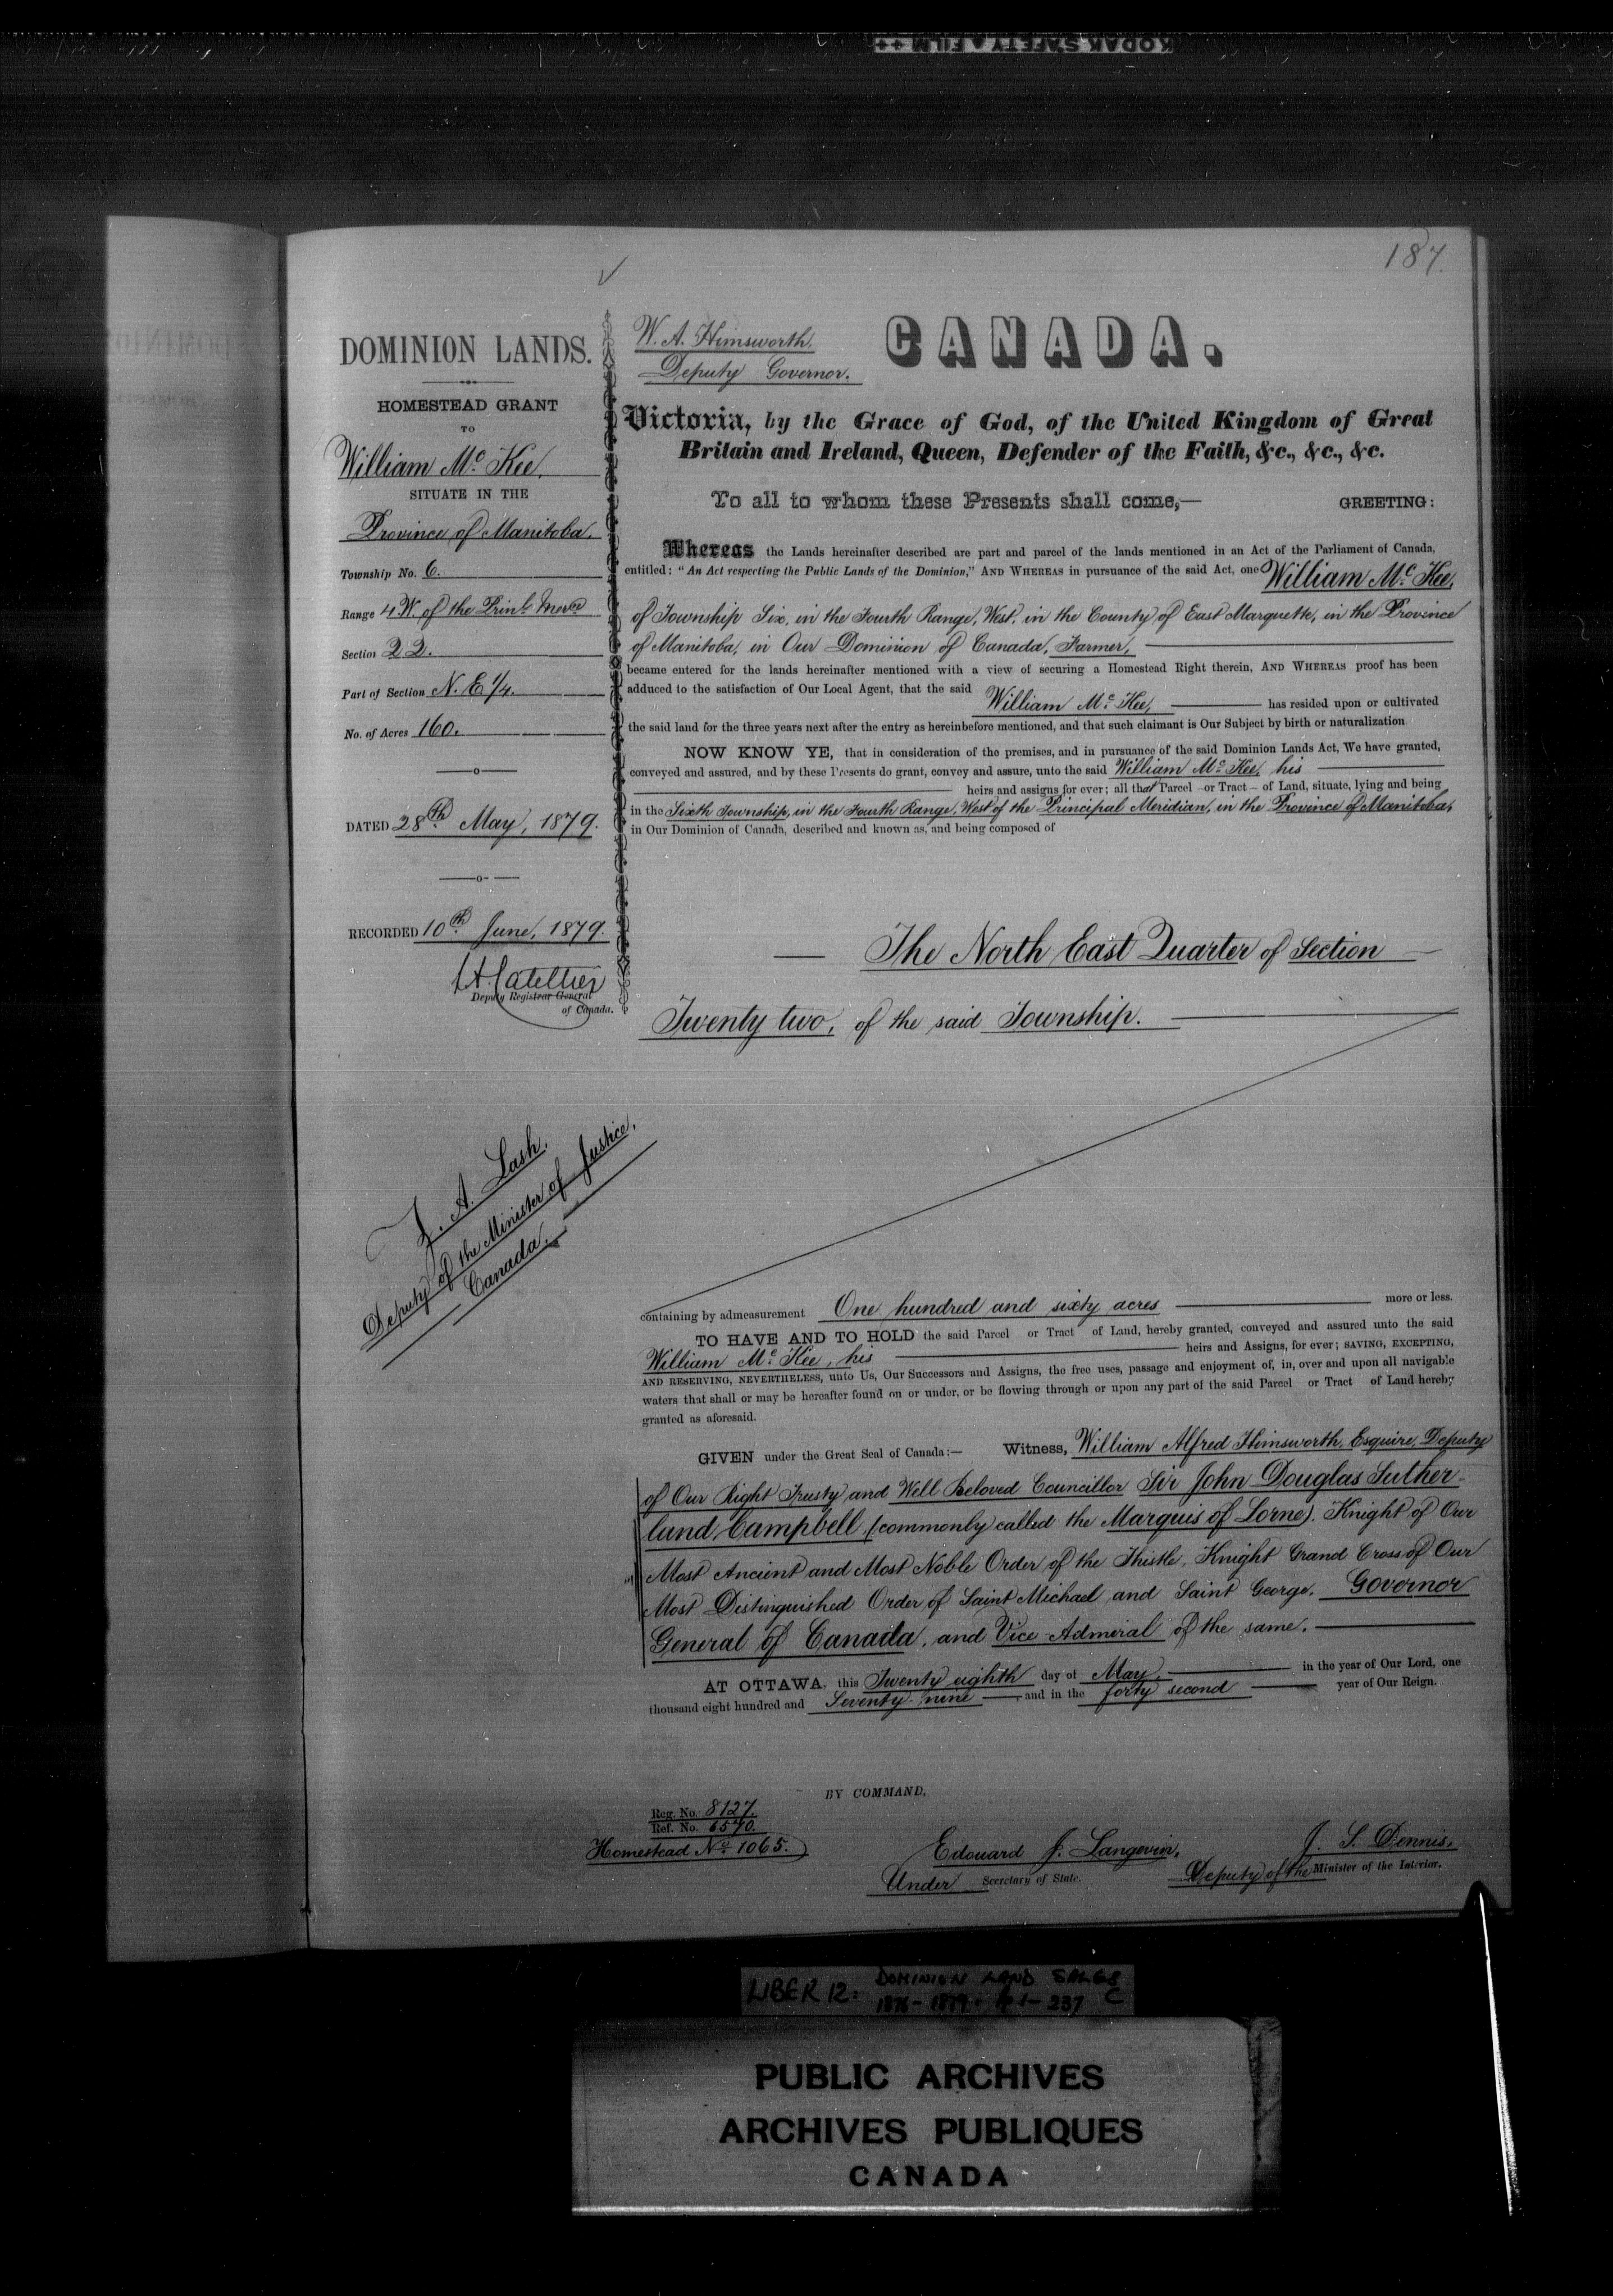 KODAK SAFETY A FILM ++
187.
DOMINION LANDS.
HOMESTEAD GRANT
TO
William Mc Kee,
SITUATE IN THE
Province of Manitoba,
Township No. 6.
Range 4 W. of the Prinl. Mern
Section 22.
Part of Section N. E 1/4.
No. of Acres 160.
DATED 28th May, 1879.
RECORDED 10th June, 1879.
Deputy Registrar General
of Canada.
Z. A. Lash,
Deputy of the Minister of Justice,
Canada.
W. A. Himsworth.
Deputy Governor.
CANADA.
Victoria, by the Grace of God, of the United Kingdom of Great
Britain and Ireland, Queen, Defender of the Faith, &c., &c., &c.
To all to whom these Presents shall come,— GREETING:
Whereas the Lands hereinafter described are part and parcel of the lands mentioned in an Act of the Parliament of Canada,
entitled: "An Act respecting the Public Lands of the Dominion," AND WHEREAS in pursuance of the said Act, one William Mc Kee,
of Township Six, in the Fourth Range, West, in the County of East Marquette, in the Province
of Manitoba, in Our Dominion of Canada, Farmer,
became entered for the lands hereinafter mentioned with a view of securing a Homestead Right therein, AND WHEREAS proof has been
adduced to the satisfaction of Our Local Agent, that the said William Mc Kee, has resided upon or cultivated
the said land for the three years next after the entry as hereinbefore mentioned, and that such claimant is Our Subject by birth or naturalization
NOW KNOW YE, that in consideration of the premises, and in pursuance of the said Dominion Lands Act, We have granted,
conveyed and assured, and by these Presents do grant, convey and assure, unto the said William Mc Kee, his
heirs and assigns for ever; all that Parcel or Tract of Land, situate, lying and being
in the Sixth Township, in the Fourth Range, West of the Principal Meridian, in the Province of Manitoba,
in Our Dominion of Canada, described and known as, and being composed of
The North East Quarter of Section
Twenty two, of the said Township.
containing by admeasurement One hundred and sixty acres more or less.
TO HAVE AND TO HOLD the said Parcel or Tract of Land, hereby granted, conveyed and assured unto the said
William Mc Kee, his heirs and Assigns, for ever; SAVING, EXCEPTING,
AND RESERVING, NEVERTHELESS, unto Us, Our Successors and Assigns, the free uses, passage and enjoyment of, in, over and upon all navigable
waters that shall or may be hereafter found on or under, or be flowing through or upon any part of the said Parcel or Tract of Land hereby
granted as aforesaid.
GIVEN under the Great Seal of Canada:— Witness, William Alfred Himsworth, Esquire, Deputy
of Our Right Trusty and Well Beloved Councillor Sir John Douglas Suther-
land Campbell (commonly called the Marquis of Lorne), Knight of Our
Most Ancient and Most Noble Order of the Thistle, Knight Grand Cross of Our
Most Distinguished Order of Saint Michael and Saint George, Governor
General of Canada, and Vice Admiral of the same.
AT OTTAWA, this Twenty eighth day of May, in the year of Our Lord, one
thousand eight hundred and Seventy nine and in the forty second year of Our Reign.
BY COMMAND,
Reg. No. 8127.
Ref. No. 6570.
Homestead No. 1065.
Edouard J. Langevin,
Under Secretary of State.
J. S. Dennis,
Deputy of the Minister of the Interior.
LIBER 12: DOMINION LAND SALES
1876-1879. pp 1-237 C
PUBLIC ARCHIVES
ARCHIVES PUBLIQUES
CANADA